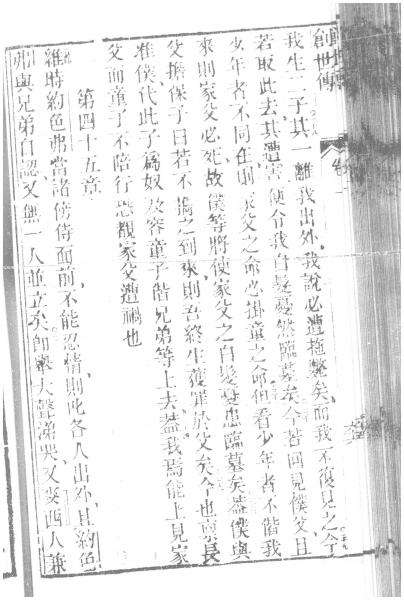 創世傳
我生二子其一離我出外、我說必遭拖斃矣、而我不復見之今
若取此去、其遭害、使令我白髮憂然臨墓矣今若回見僕父、且
少年者不同在則家父之命必掛童之命、但看少年者不偕我
來則家父必死、故僕等將使家父之白髮憂患臨墓矣葢僕與
父擔保子曰若不攜之到來、則吾終生獲罪於父矣今也稟長
准僕、代此子爲奴及容童子偕兄弟等上去、葢我焉能上見家
父面童子不陪行恐覩家父遭禍也
第四十五章
維時約色弗當諸傍侍面前、不能忍情、則叱各人出外、且約色
弗與兄弟自認又無一人並立矣卽舉大聲涕哭、又麥西人兼